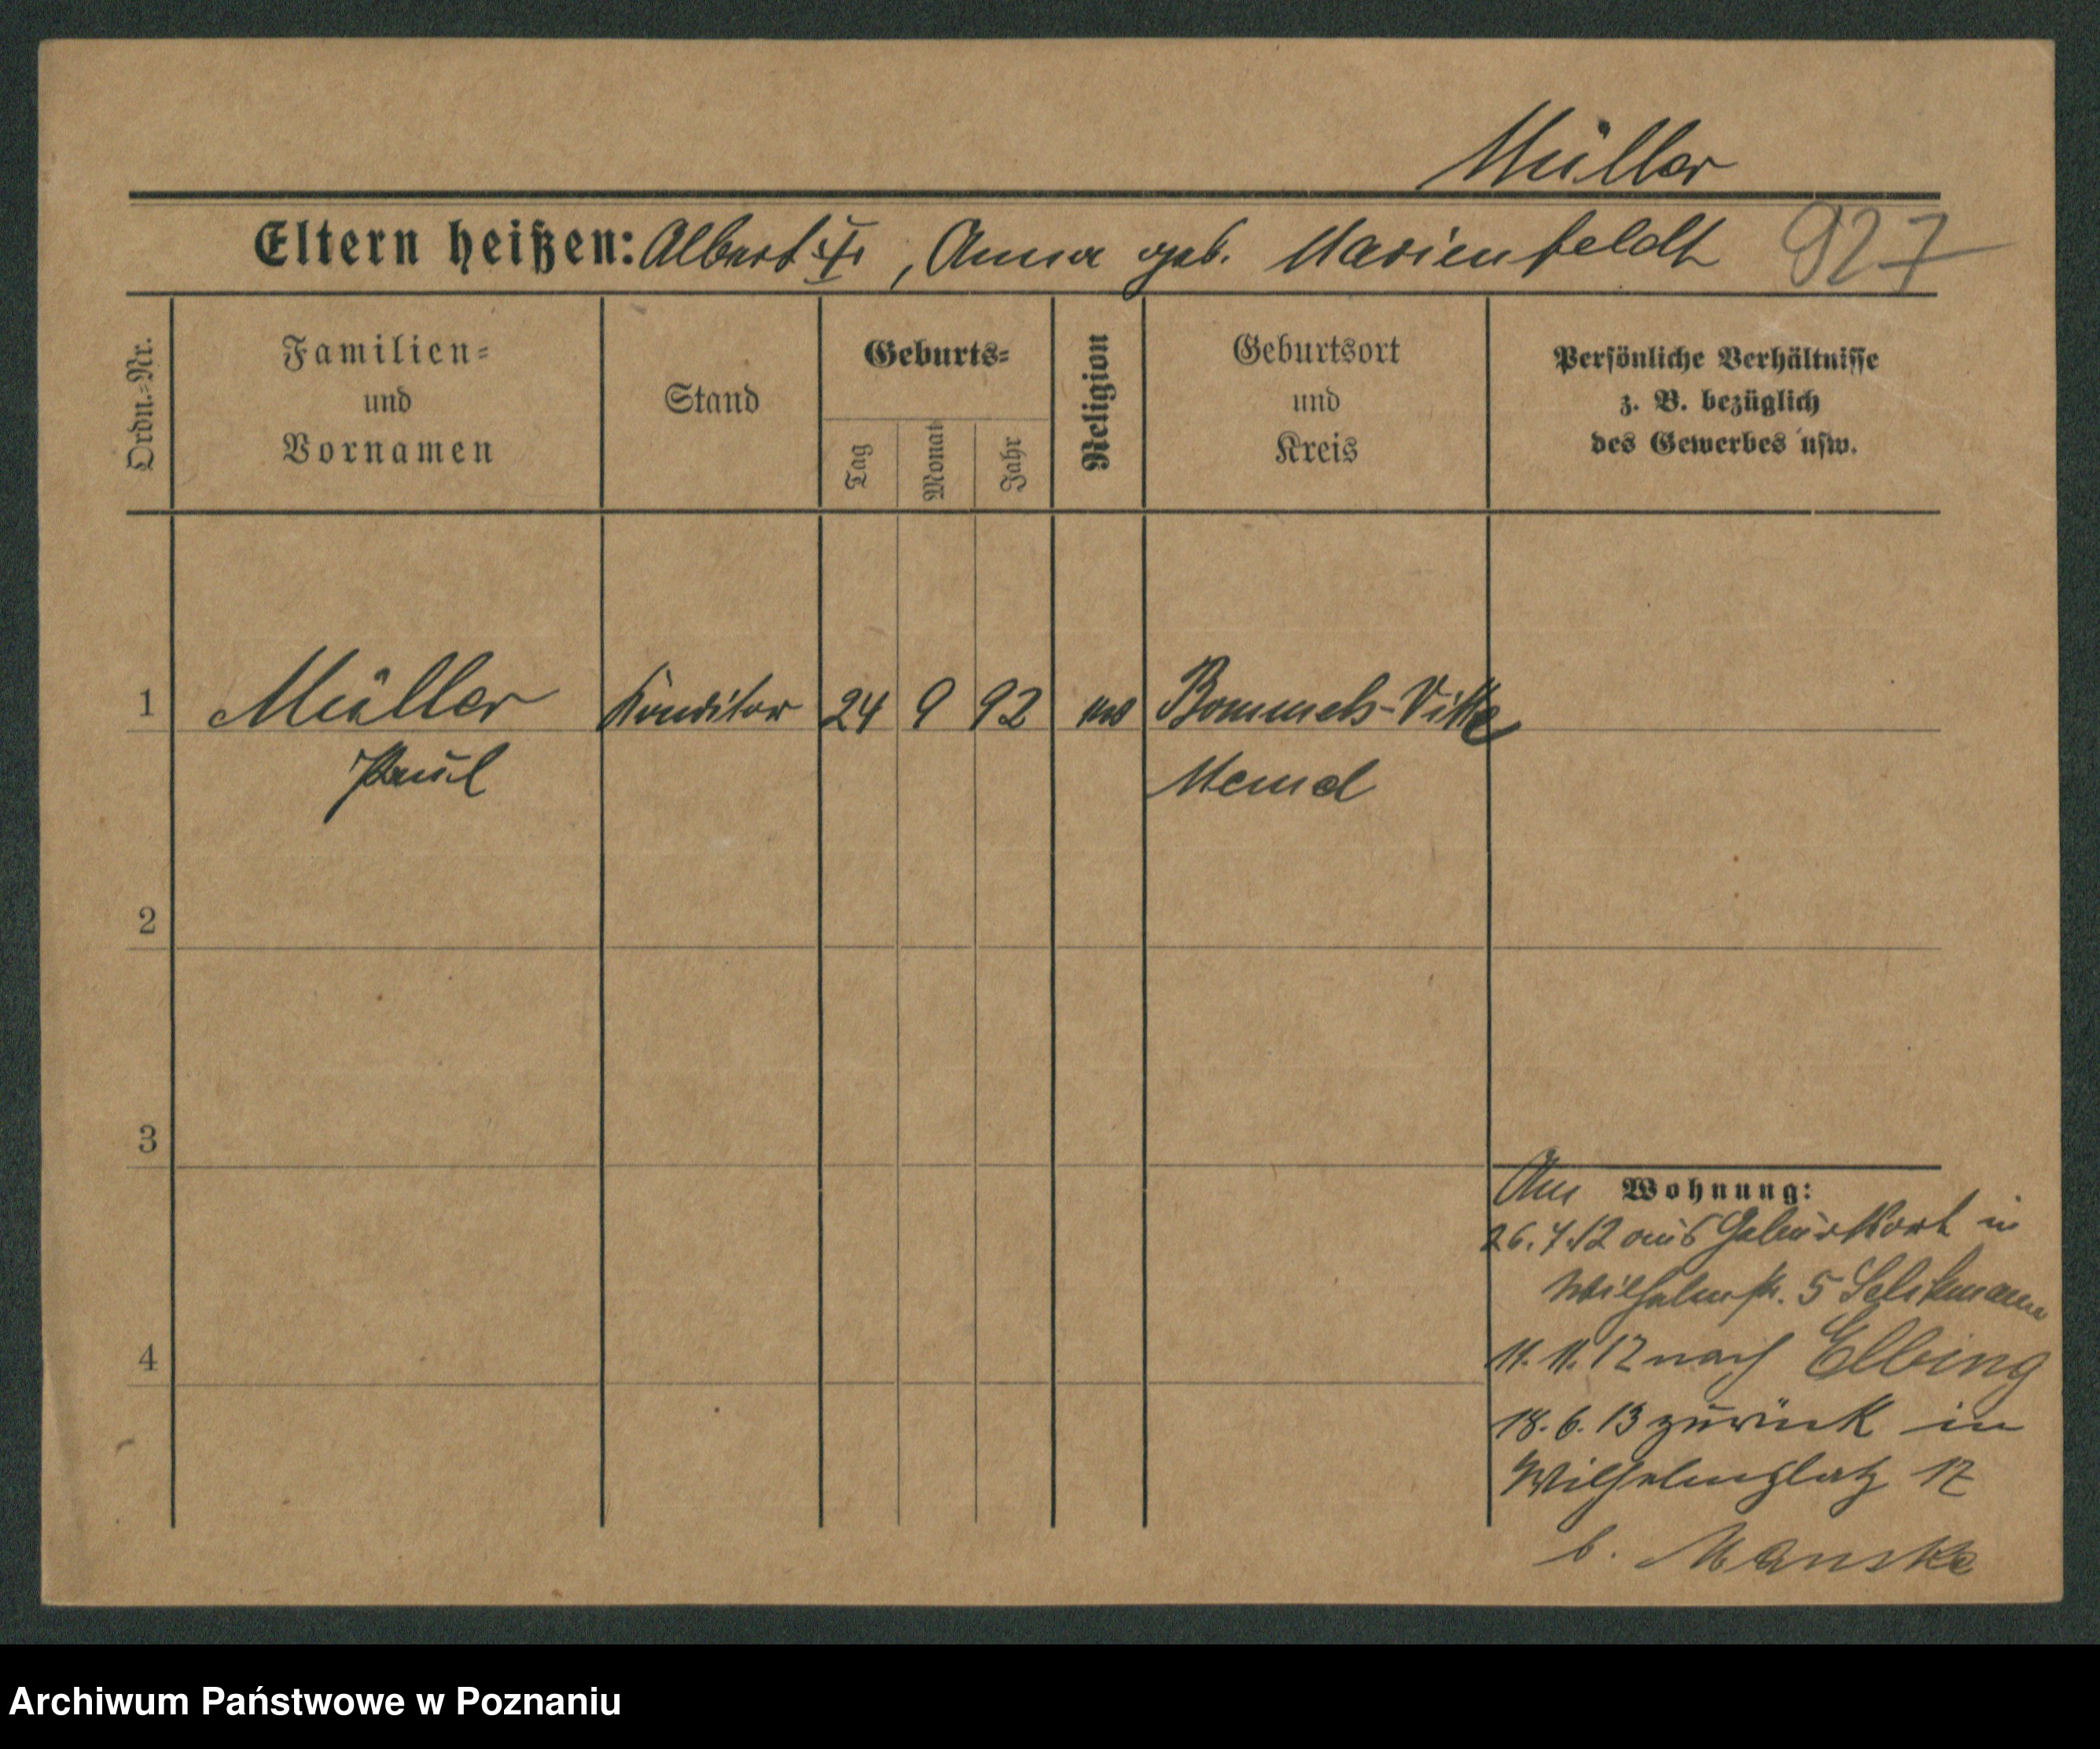 Müller
Eltern heißen: Albert †, Anna geb. Marienfeldt 927
Ordn.-Nr.
Familien-
und
Vornamen
Stand
Geburts-
Tag
Monat
Jahr
Religion
Geburtsort
und
Kreis
Persönliche Verhältnisse
z. B. bezüglich
des Gewerbes usw.
1 Müller Konditor 24 9 92 ev Bommels-Vitte
Paul Memel
2
3
Am Wohnung:
26.7.12 aus Geburtsort in
Wilhelmstr. 5
4
11.11.12 nach Elbing
18.6.13 zurück in
Wilhelmsplatz 17
b. Manske
Archiwum Państwowe w Poznaniu